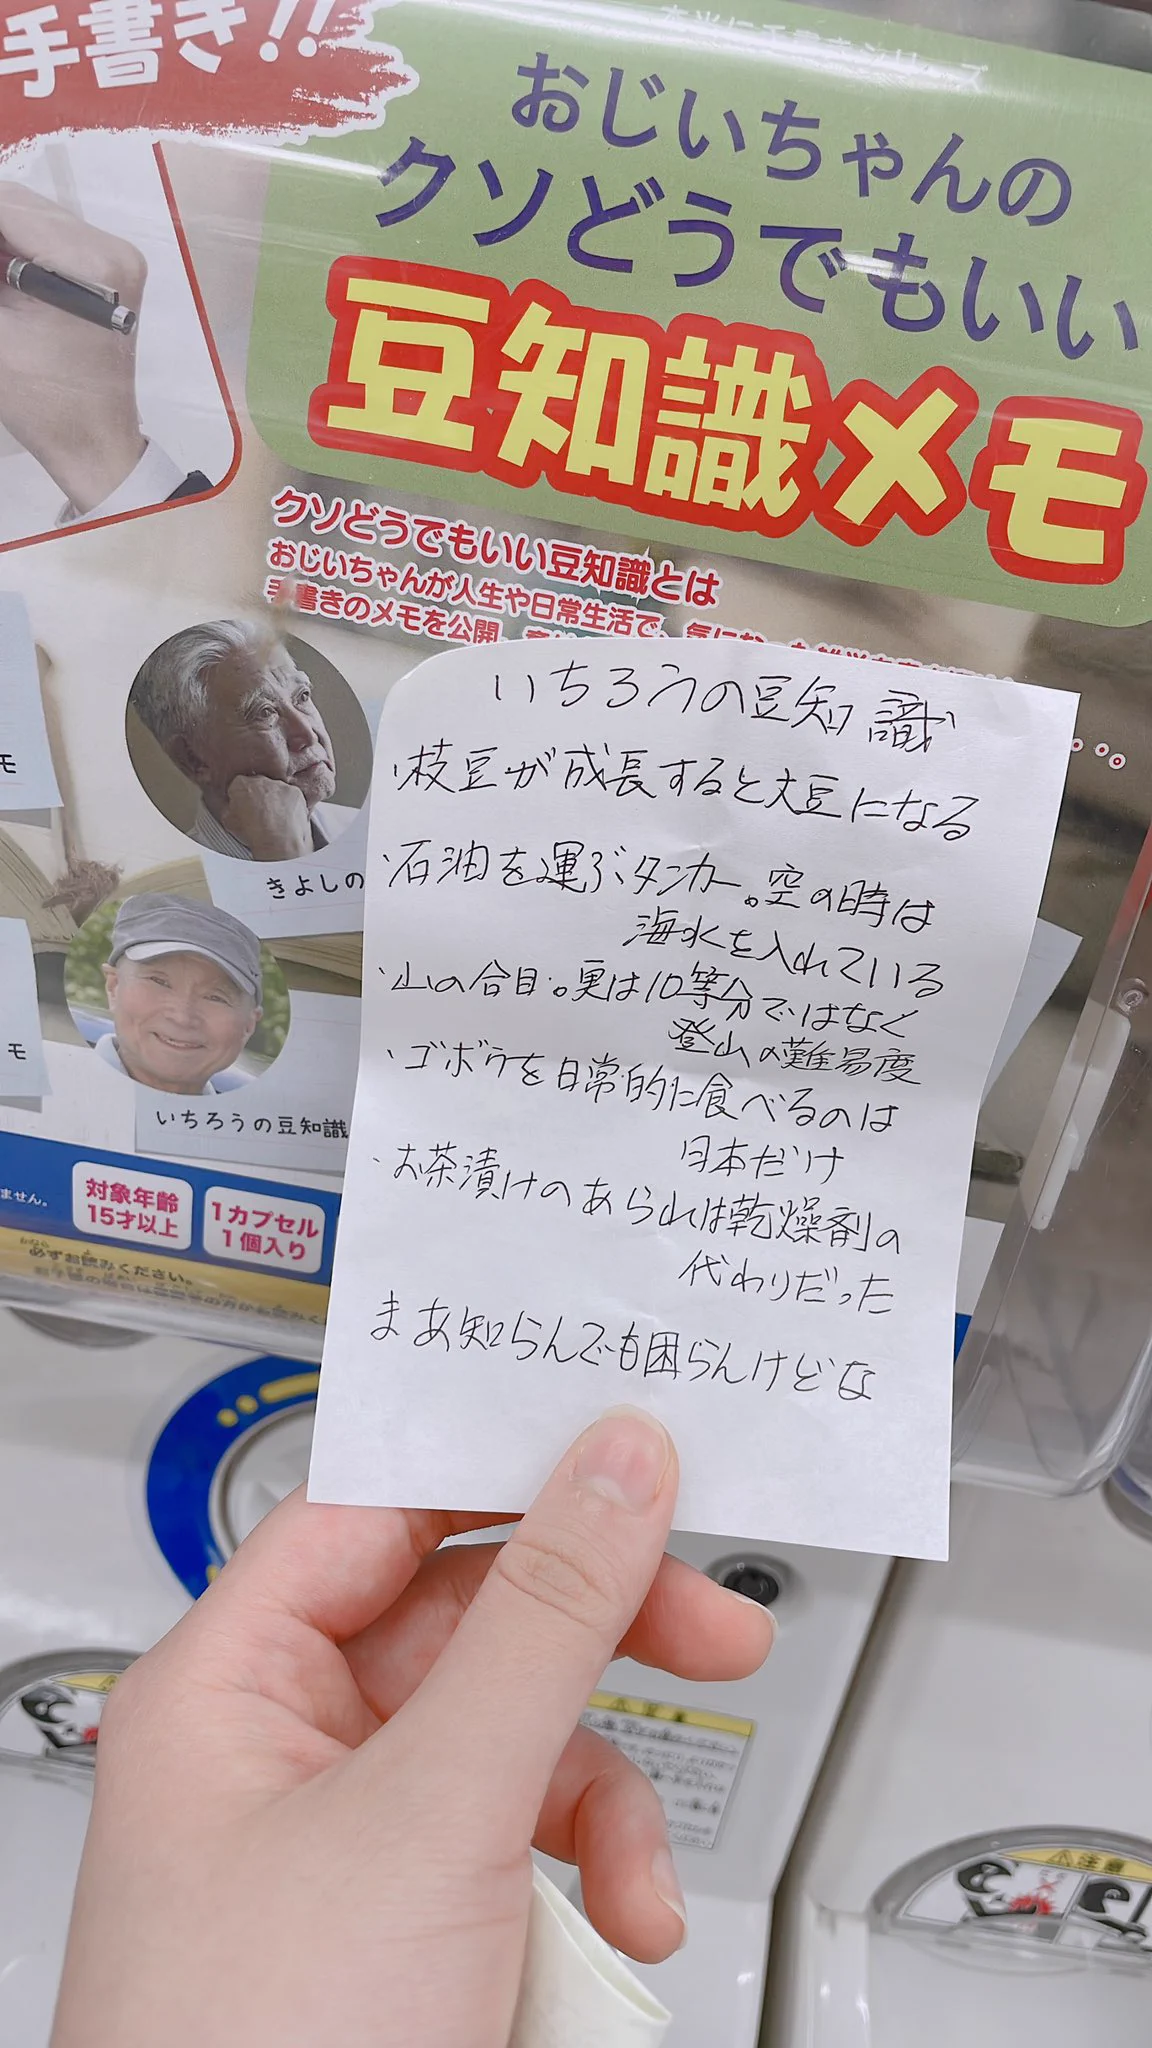 手書き!!
おじいちゃんの
クソどうでもいい
豆知識メモ
クソどうでもいい豆知識とは
おじいちゃんが人生や日常生活で、気になった
手書きのメモを公開。
いちろうの豆知識
・枝豆が成長すると大豆になる
・石油を運ぶタンカー。空の時は
海水を入れている
・山の合目。実は10等分ではなく
登山の難易度
・ゴボウを日常的に食べるのは
日本だけ
・お茶漬けのあられは乾燥剤の
代わりだった
まあ知らんでも困らんけどな
モ
きよしの
モ
いちろうの豆知識
ません。
対象年齢
15才以上
1カプセル
1個入り
必ずお読みください。
注意